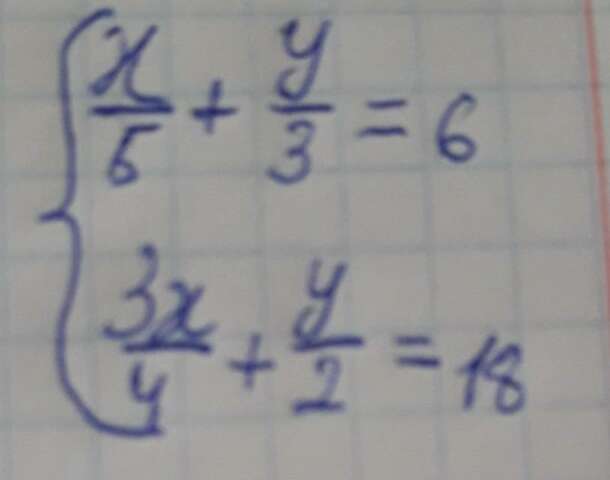 x/5 + y/3 = 6
3x/4 + y/2 = 18